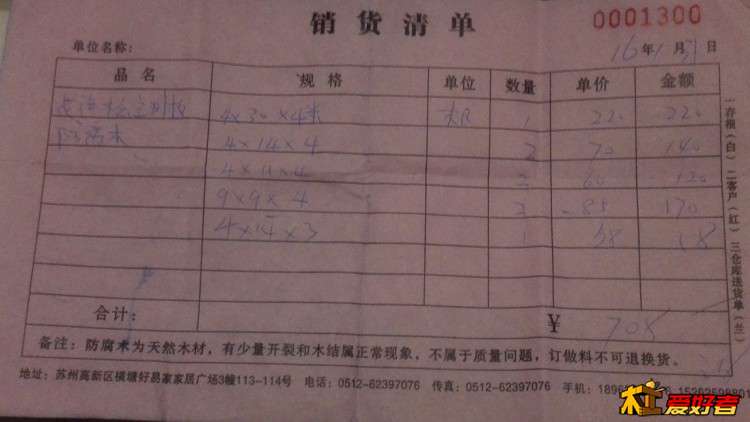 销货清单
0001300
单位名称:
16年1月31日
品名 规格 单位 数量 单价 金额
4×30×4米 1 220 220
防腐木 4×14×4 2 70 140
2 60 120
9×9×4 2 85 170
4×14×3 1 58 58
合计: ¥ 708
备注:防腐木为天然木材,有少量开裂和木结属正常现象,不属于质量问题,订做料不可退换货。
地址:苏州高新区横塘好易家家居广场3幢113-114号 电话:0512-62397076 传真:0512-62397076 手机:
一存根(白)二客户(红)三仓库送货单(兰)
木工爱好者